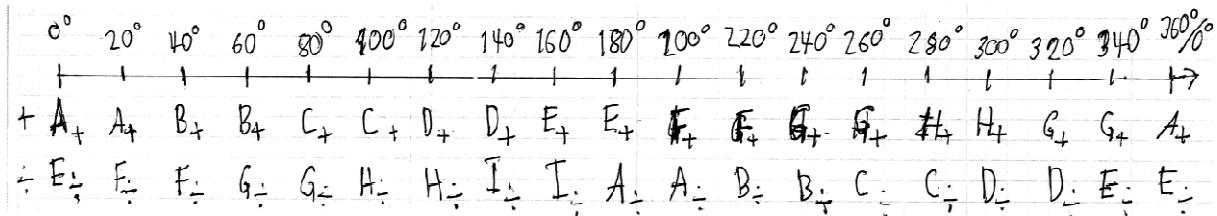 0° 20° 40° 60° 80° 100° 120° 140° 160° 180° 200° 220° 240° 260° 280° 300° 320° 340° 360°/0°
+ A+ A+ B+ B+ C+ C+ D+ D+ E+ E+ F+ F+ G+ G+ H+ H+ G+ G+ A+
÷ E÷ F÷ F÷ G÷ G÷ H÷ H÷ I÷ I÷ A÷ A÷ B÷ B÷ C÷ C÷ D÷ D÷ E÷ E÷